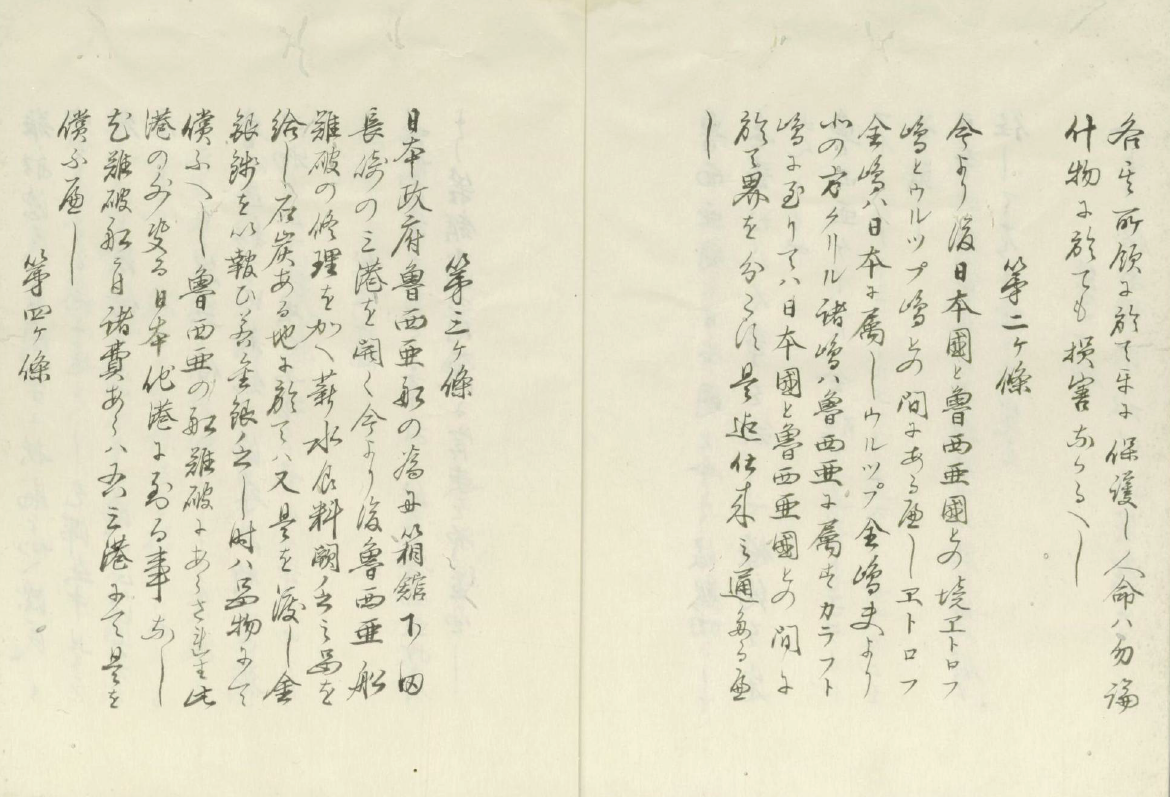 各其所領に於て互に保護し人命ハ勿論
什物に於ても損害なかるへし
第二ヶ條
今より後日本國と魯西亜國との境ヱトロフ
嶋とウルップ嶋との間にあるへしヱトロフ
全嶋ハ日本に属しウルップ全嶋夫より
北の方クリル諸嶋ハ魯西亜に属すカラフト
嶋に至りてハ日本國と魯西亜國との間に
於て界を分たす是迄仕来之通たるへ
し
第三ヶ條
日本政府魯西亜船の為に箱舘下田
長崎の三港を開く今より後魯西亜船
難破の修理を加へ薪水食料闕乏之品を
給し石炭ある地に於てハ又是を渡し金
銀銭を以報ひ若金銀乏し時ハ品物にて
償ふへし魯西亜の船難破にあらされハ此
港の外決て日本他港に到る事なし
尤難破船に付諸費あらハ右三港にて是を
償ふへし
第四ヶ條